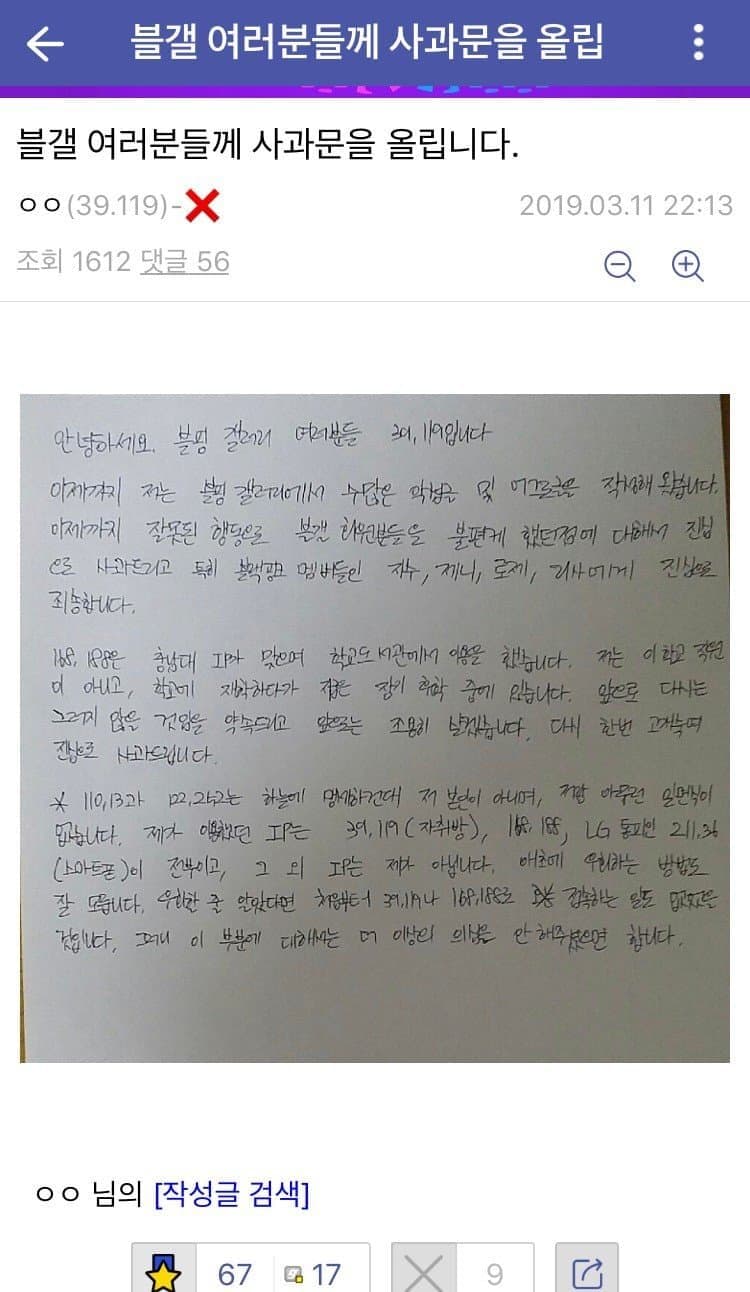 블갤 여러분들께 사과문을 올립
블갤 여러분들께 사과문을 올립니다.
ㅇㅇ(39.119)-
2019.03.11 22:13
조회 1612 댓글 56
안녕하세요. 블핑 갤러리 여러분들 39,119입니다
이제까지 저는 블핑 갤러리에서 수많은 악성글 및 어그로글을 작성해 왔습니다.
이제까지 잘못된 행동으로 블갤 회원분들을 불편케 했던점에 대해서 진심
으로 사과드리고 특히 블랙핑크 멤버들인 지수, 제니, 로제, 리사에게 진심으로
죄송합니다.
168, 188은 충남대 IP가 맞으며 학교도서관에서 이용을 했습니다. 저는 이 학교 직원
이 아니고, 학교에 재학하다가 장기 휴학 중에 있습니다. 앞으로 다시는
그러지 않을 것임을 약속드리고 앞으로는 조용히 살겠습니다. 다시 한번 고개숙여
진심으로 사과드립니다.
* 110,13과 122,252는 하늘에 맹세하건대 저 본인이 아니며, 저랑 아무런 일면식이
없습니다. 제가 이용했던 IP는 39,119(자취방), 168,188, LG 통피인 211.36
(스마트폰)이 전부이고, 그 외 IP는 제가 아닙니다. 애초에 우회하는 방법도
잘 모릅니다. 우회할 줄 알았다면 처음부터 39,119나 168,188로 접속하는 일도 없었을
것입니다. 그러니 이 부분에 대해서는 더 이상의 의심을 안 해주셨으면 합니다.
ㅇㅇ 님의 [작성글 검색]
67 17 9